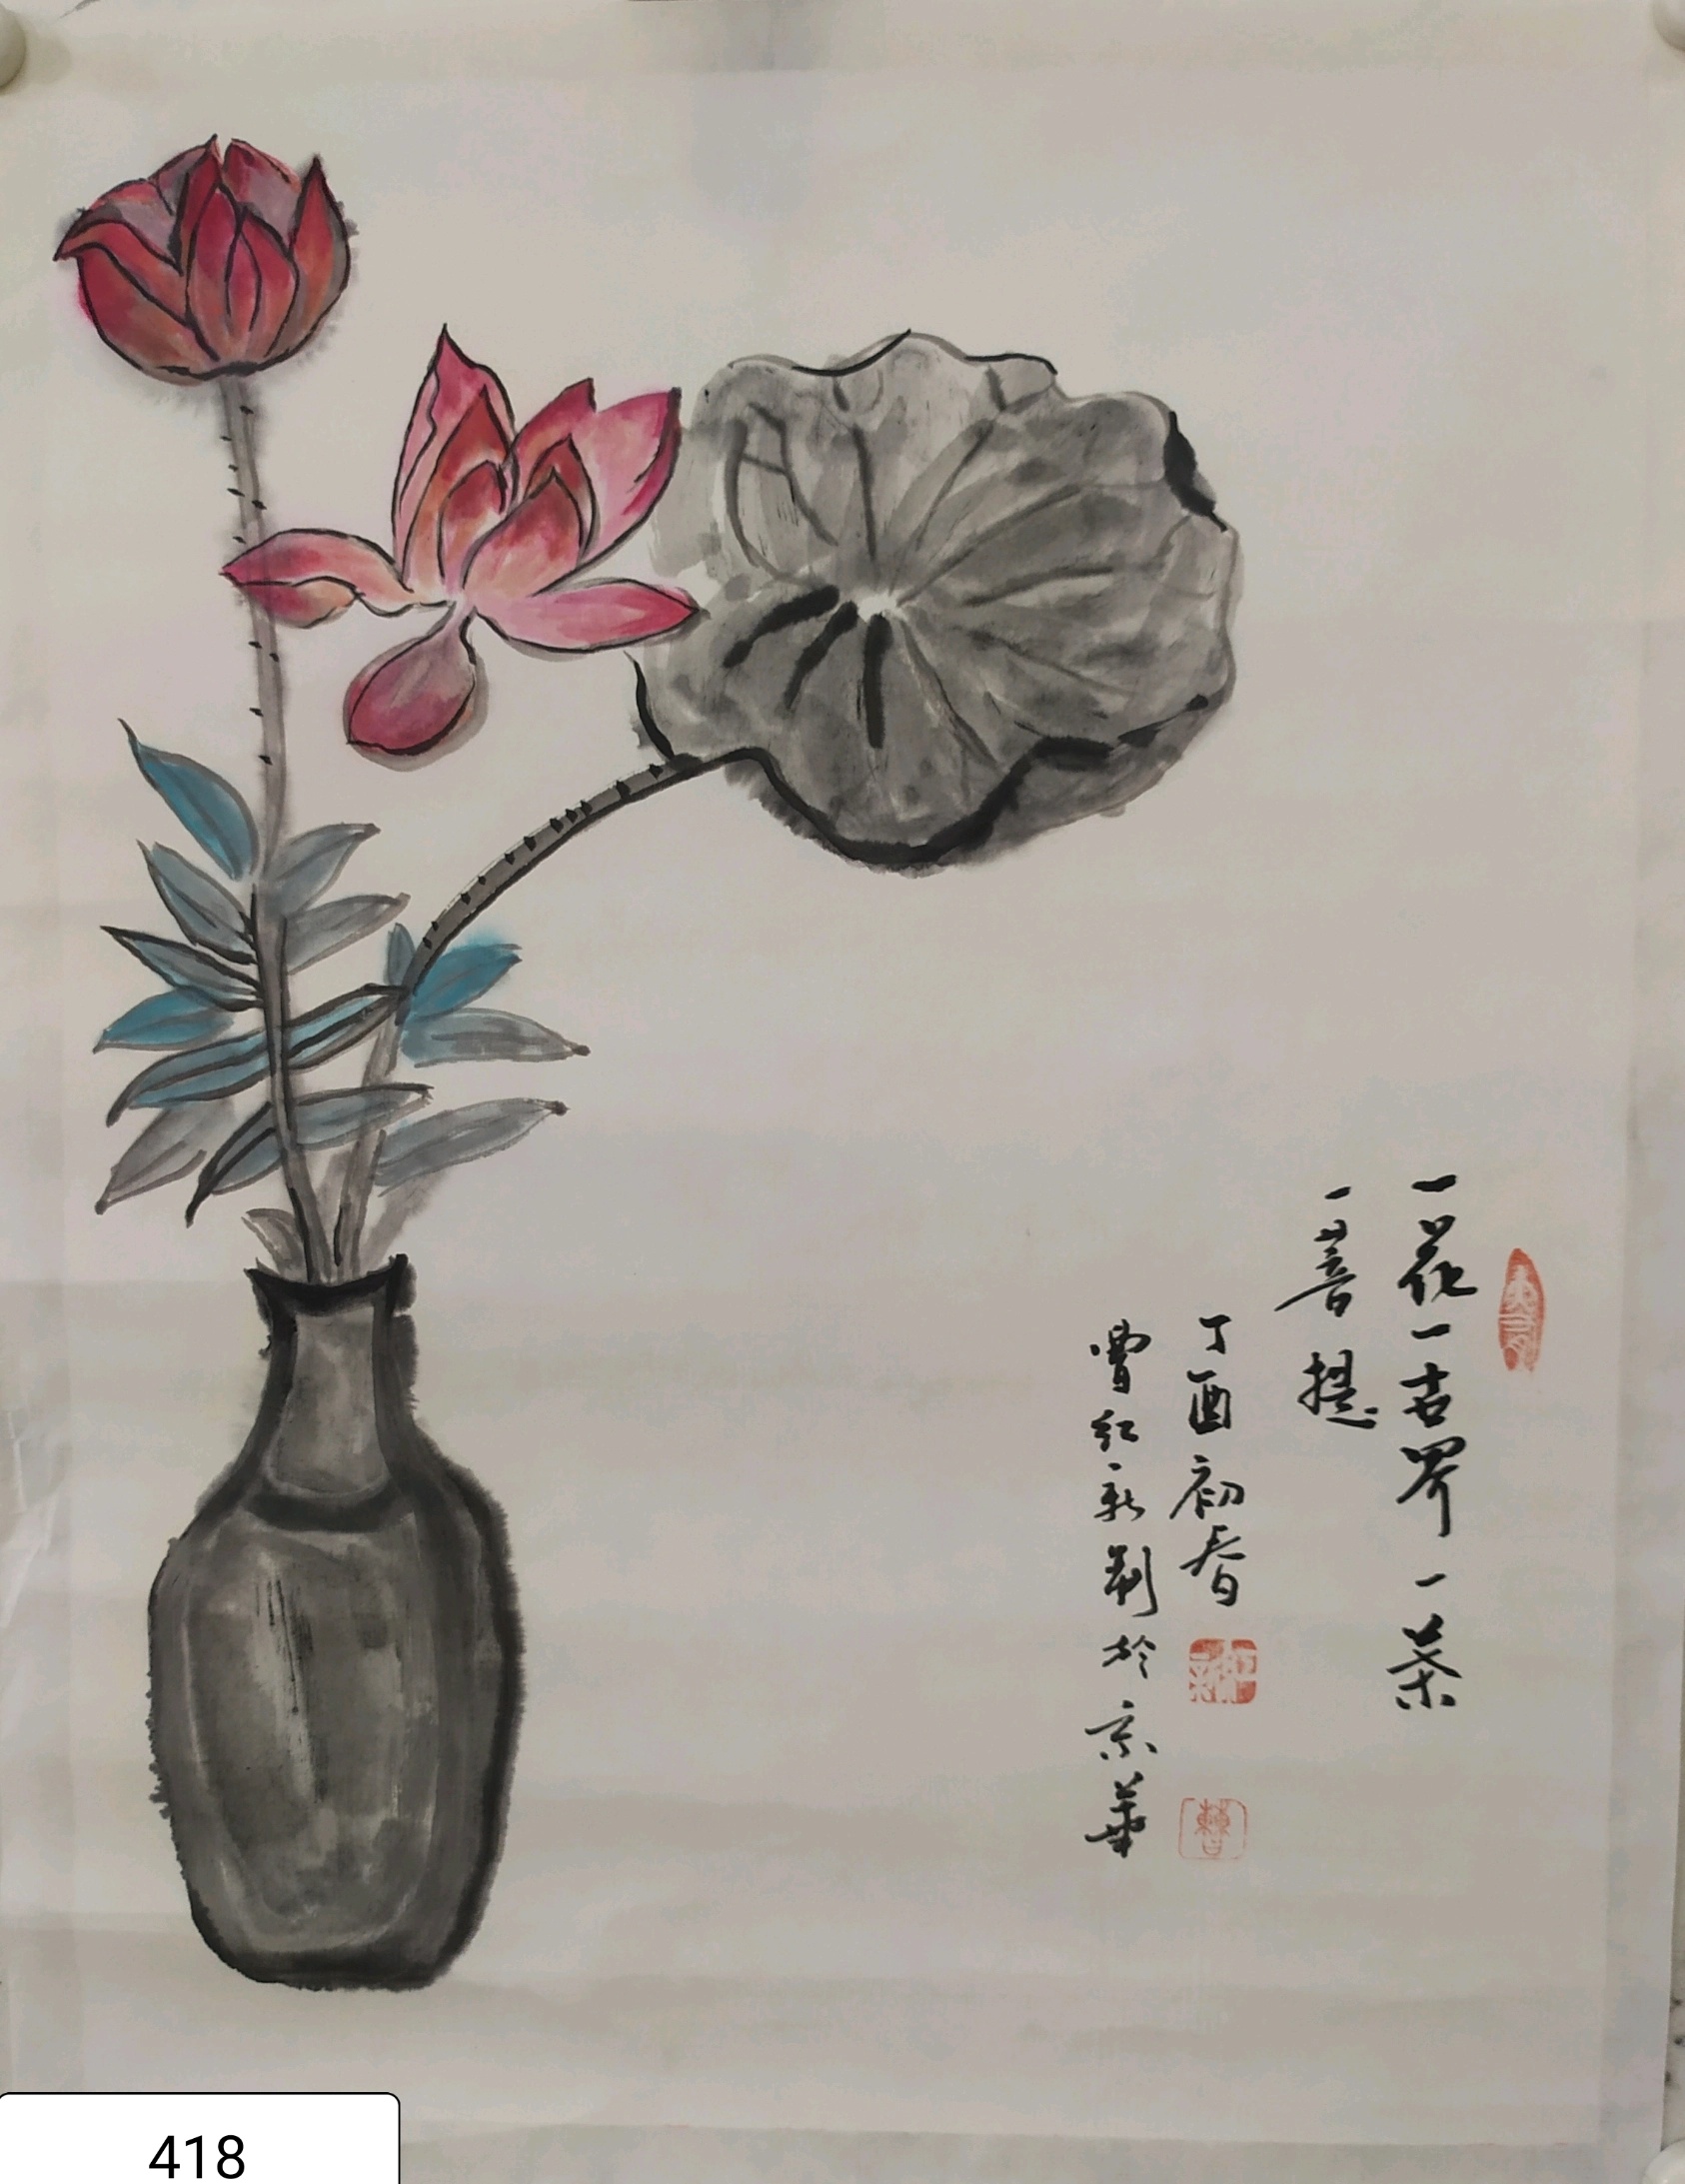 一花一世界一葉
一菩提
丁酉初春
曹红新制於京華
曹
418